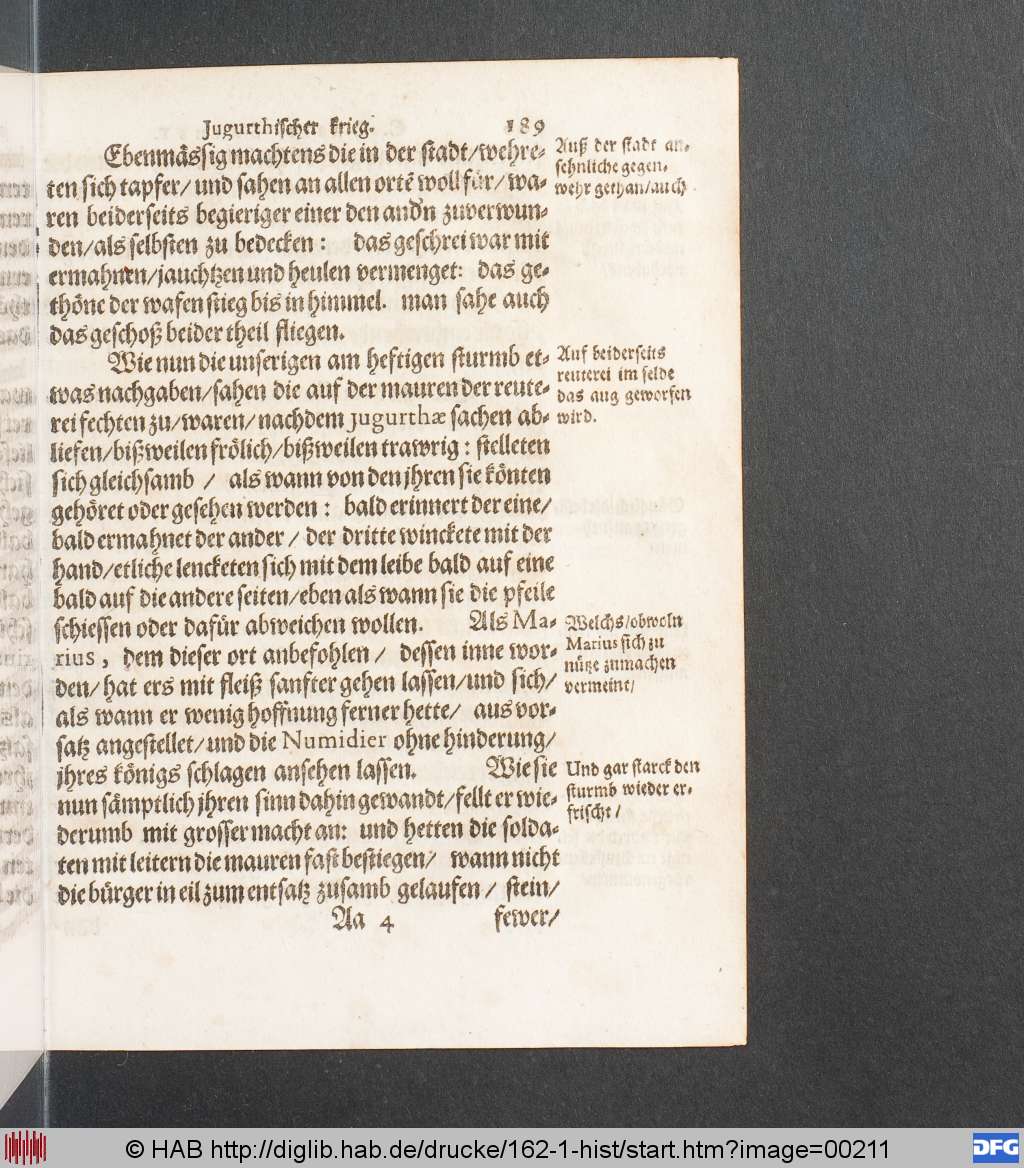 Jugurthischer krieg. 189
Ebenmässig machtens die in der stadt/wehre-
ten sich tapfer/ und sahen an allen ortē woll für/ wa-
ren beiderseits begieriger einer den andn zuverwun-
den/als selbsten zu bedecken : das geschrei war mit
ermahnen/jauchtzen und heulen vermenget: das ge-
thöne der wafen stieg bis in himmel. man sahe auch
das geschoß beider theil fliegen.
Wie nun die unserigen am heftigen sturmb et-
was nachgaben/sahen die auf der mauren der reute-
rei fechten zu/waren/nachdem Jugurthæ sachen ab-
liefen/bißweilen frölich/bißweilen trawrig : stelleten
sich gleichsamb / als wann von den jhren sie könten
gehöret oder gesehen werden : bald erinnert der eine/
bald ermahnet der ander / der dritte winckete mit der
hand/etliche lencketen sich mit dem leibe bald auf eine
bald auf die andere seiten/eben als wann sie die pfeile
schiessen oder dafür abweichen wollen. Als Ma-
rius, dem dieser ort anbefohlen / dessen inne wor-
den/ hat ers mit fleiß sanfter gehen lassen/und sich/
als wann er wenig hoffnung ferner hette/ aus vor-
satz angestellet/und die Numidier ohne hinderung/
jhres königs schlagen ansehen lassen. Wie sie
nun sämptlich jhren sinn dahin gewandt/fellt er wie-
derumb mit grosser macht an: und hetten die solda-
ten mit leitern die mauren fast bestiegen/ wann nicht
die bürger in eil zum entsatz zusamb gelaufen / stein/
Aa 4 fewer/
Auß der stadt an-
sehnliche gegen-
wehr gethan/auch
Auf beiderseits
reuterei im felde
das aug geworfen
wird.
Welchs/obwoln
Marius sich zu
nütze zumachen
vermeint/
Und gar starck den
sturmb wieder er-
frischt/
© HAB http://diglib.hab.de/drucke/162-1-hist/start.htm?image=00211
DFG